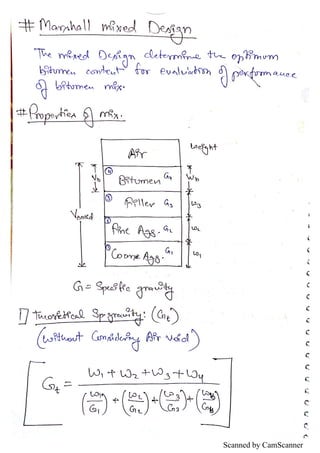 # Marshall mixed Design
The mixed Design determine the optimum
bitumen content for evaluation of performance
of bitumen mix.
# Properties of mix.
weight
Air
④ Bitumen G4 Vb Wb
③ Filler G3 W3
Vmixed
② Fine Agg. G2 W2
① Coarse Agg. G1 W1
G = Specific gravity
1] Theoretical Sp gravity: (Gt)
(without Considering Air void)
Gt = W1 + W2 + W3 + W4
(W1/G1) + (W2/G2) + (W3/G3) +
Scanned by CamScanner